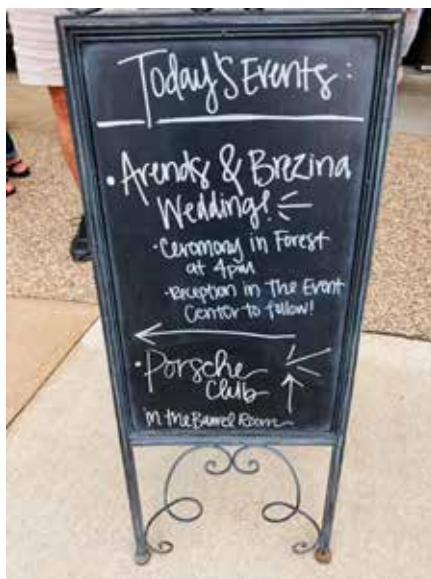 Today's Events:
• Arends & Brezina
Wedding!
• Ceremony in Forest
at 4pm
• Reception in The Event
Center to follow!
• Porsche
Club
in the Barrel Room